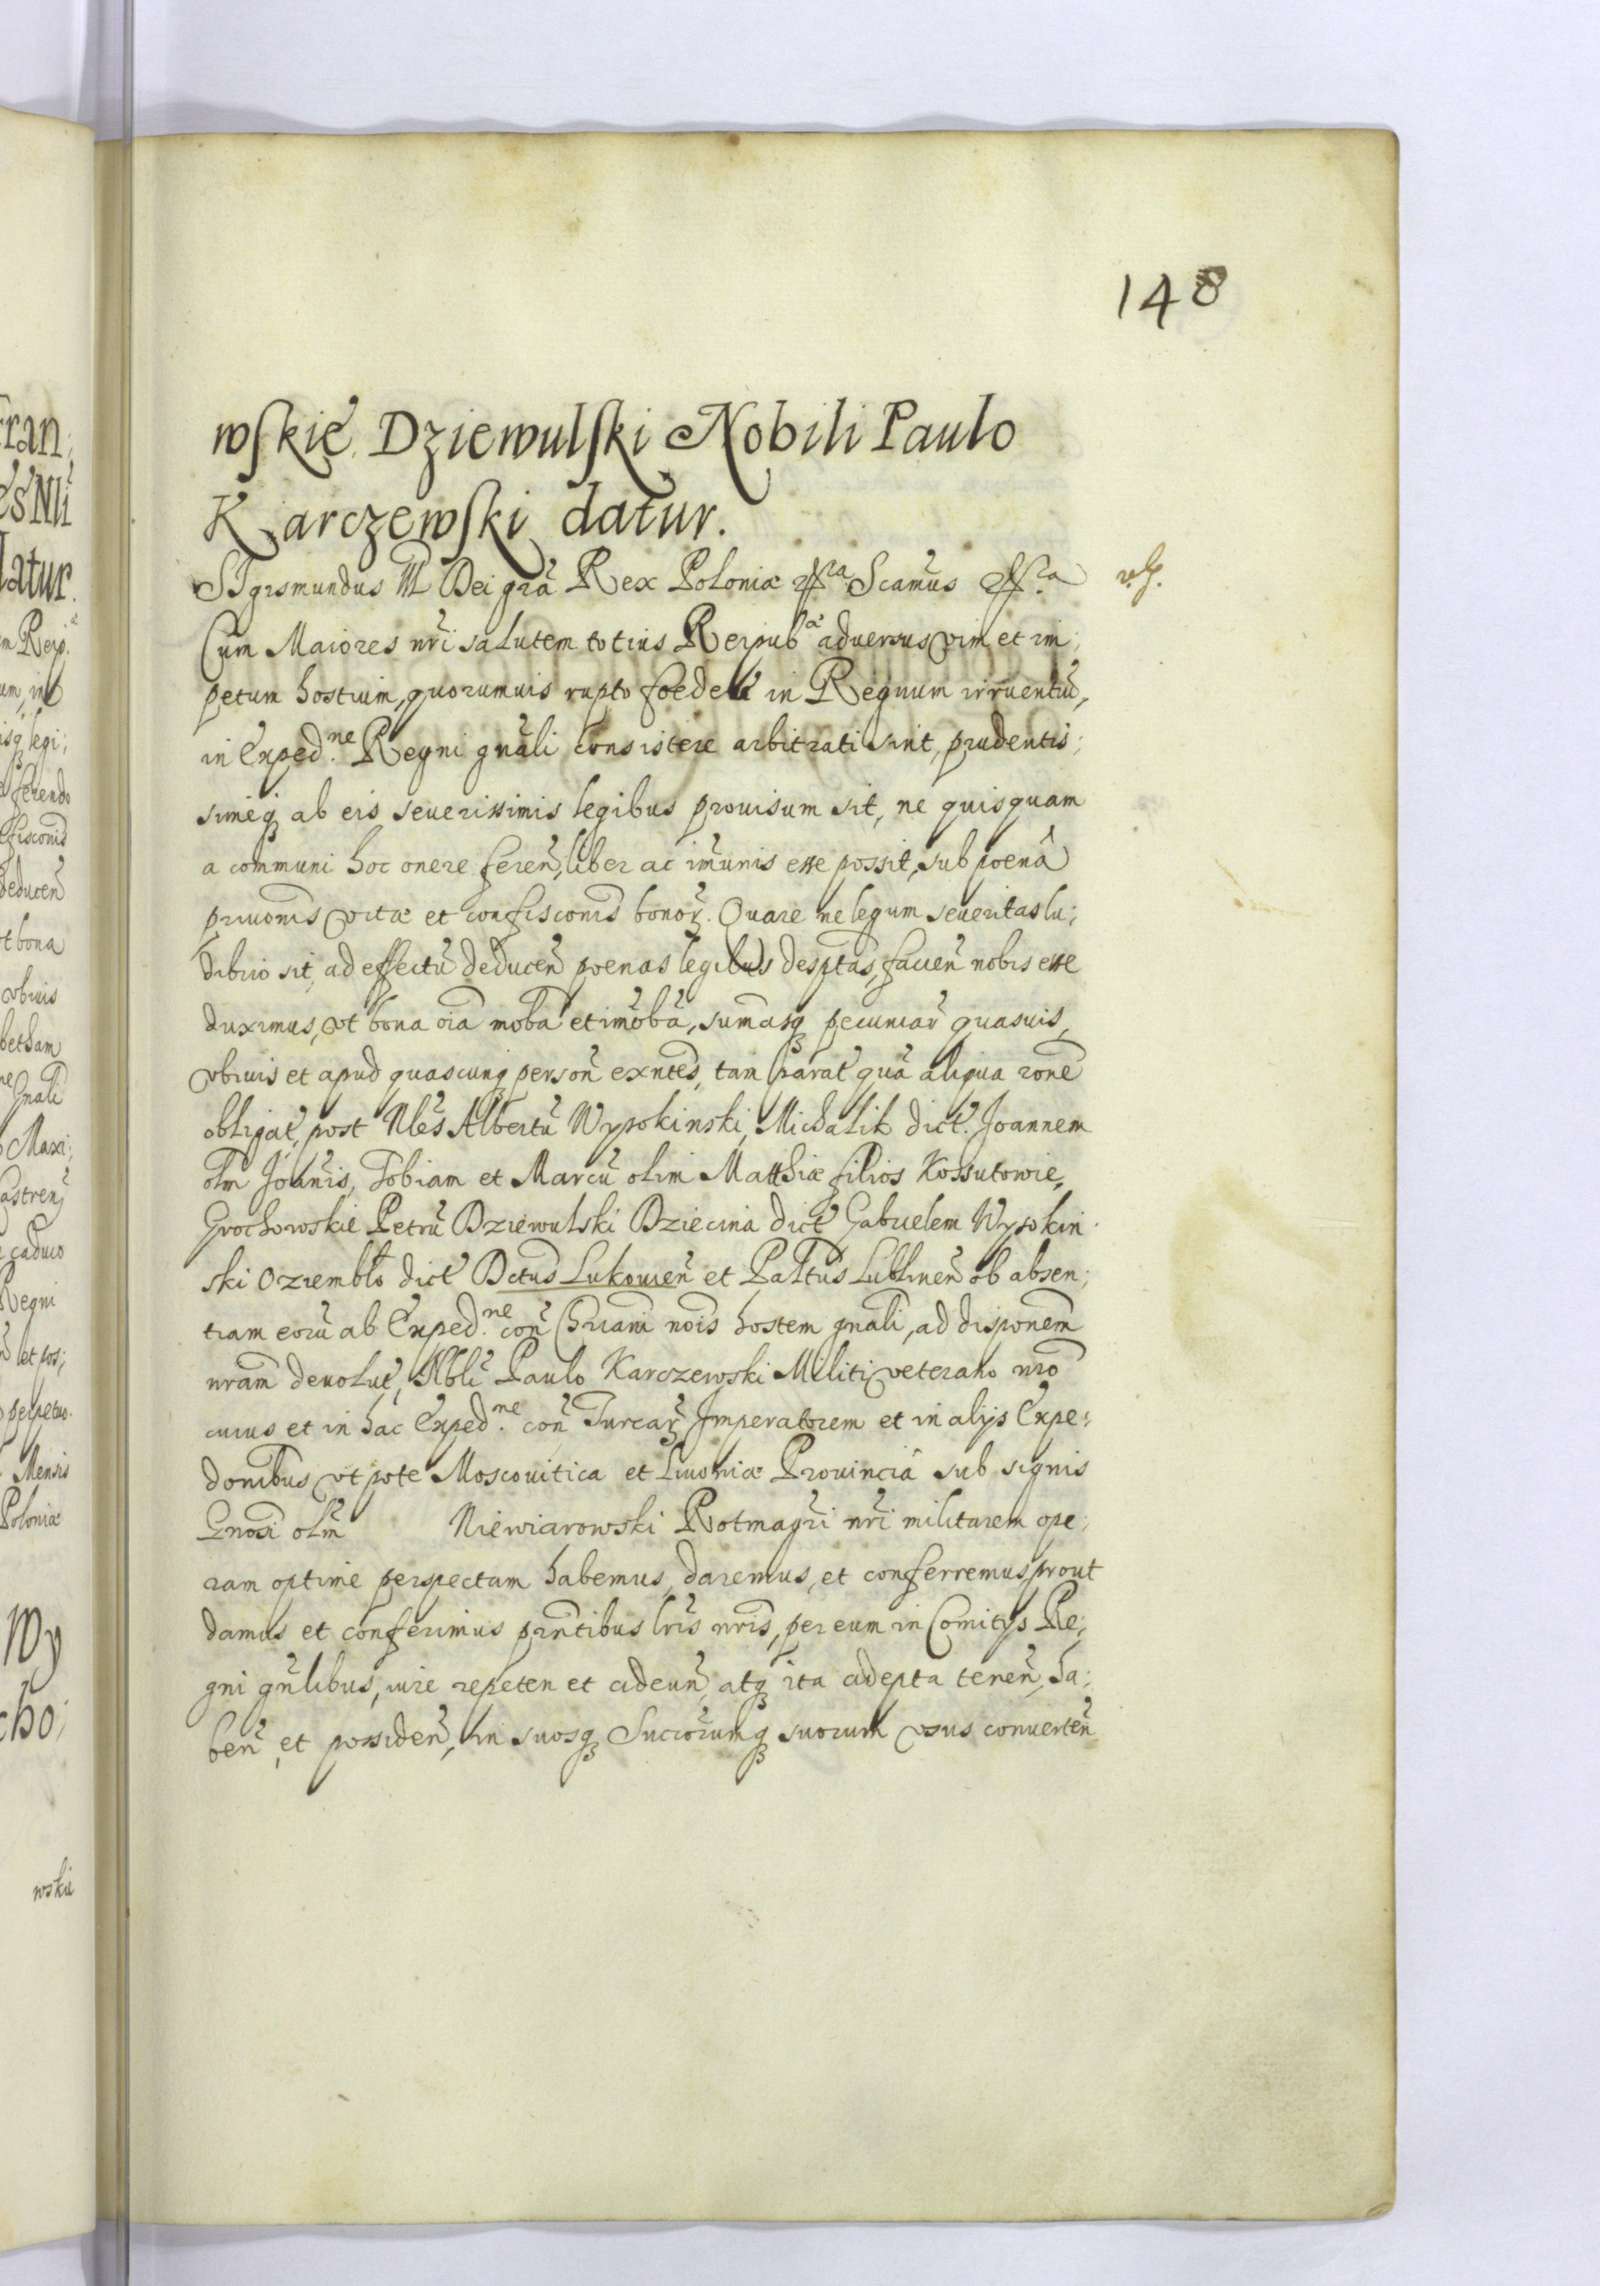 148
wskie Dziewulski Nobili Paulo
Karczewski datur.
SIgismundus III Dei grã Rex Poloniæ Scamus
Cum Maiores nri salutem totius Reipub<sup>æ</sup> adversus vim et im;
petum hostium, quorumuis rupto foedere in Regnum irruentiũ,
in Exped.<sup>ne</sup> Regni gnãli consistere arbitrati sint, prudentis;
simeq̃ ab eis seuerissimis legibus prouisum sit, ne quisquam
a communi hoc onere feren̄, liber ac im̄unis esse possit, sub poenâ
priuonis vitæ et confisconis bonor̃. Quare ne legum seueritas lu;
dibrio sit, ad effectũ deducen̄ poenas legibus desptas, facien̄ nobis esse
duximus, vt bona oĩa mobã et im̄obã, sum̄asq̃ pecuniar̃ quasuis,
vbiuis et apud quascunq̃ person̄ exntes, tam parat̃ quã aliqua rone
obligat̃, post Nles Albertũ Wysokinski, Michalik dict. Joannem
olm Joannis, Tobiam et Marcũ olim Matthiæ filios Kossutowie,
Grochowskie Petrũ Dziewulski Dziecina dict̃ Gabrielem Wysokin
ski Oziembło dict̃ Dctus Lukouien̄ et Paltus Lublinen̄ ob absen;
tiam eorũ ab Exped.<sup>ne</sup> con̄ Chriani nois hostem gnali, ad disponem
nram deuolut̃, Nbli Paulo Karczewski Militi veterano nro
cuius et in hac Exped.<sup>ne</sup> con̄ Turcar̃ Imperatorem et in alijs Expe;
donibus vt pote Moscouitica et Liuoniæ Prouinciâ sub signis
Gnosi olm Niewiarowski Rotmagri nri militarem ope;
ram optime perspectam habemus, daremus, et conferremus prout
damus et conferimus pr̃ntibus lris nris, per eum in Comitijs Re;
gni gñlibus, iure repeten et adeun̄, atq̃ ita adepta tenen̄, ha;
ben̄, et possiden̄, in suosq̃ Succorumq̃ suorum vsus conuerten̄
ran;
es Nli
latur.
m Reip.
isq̃ legi;
ferendo
deducen̄
t bona
vbiuis
betham
Gnali
Maxi;
astren̄
caduco
Regni
et pos;
perpetuo.
Mensis
Poloniæ
Wy
cho;
wskie